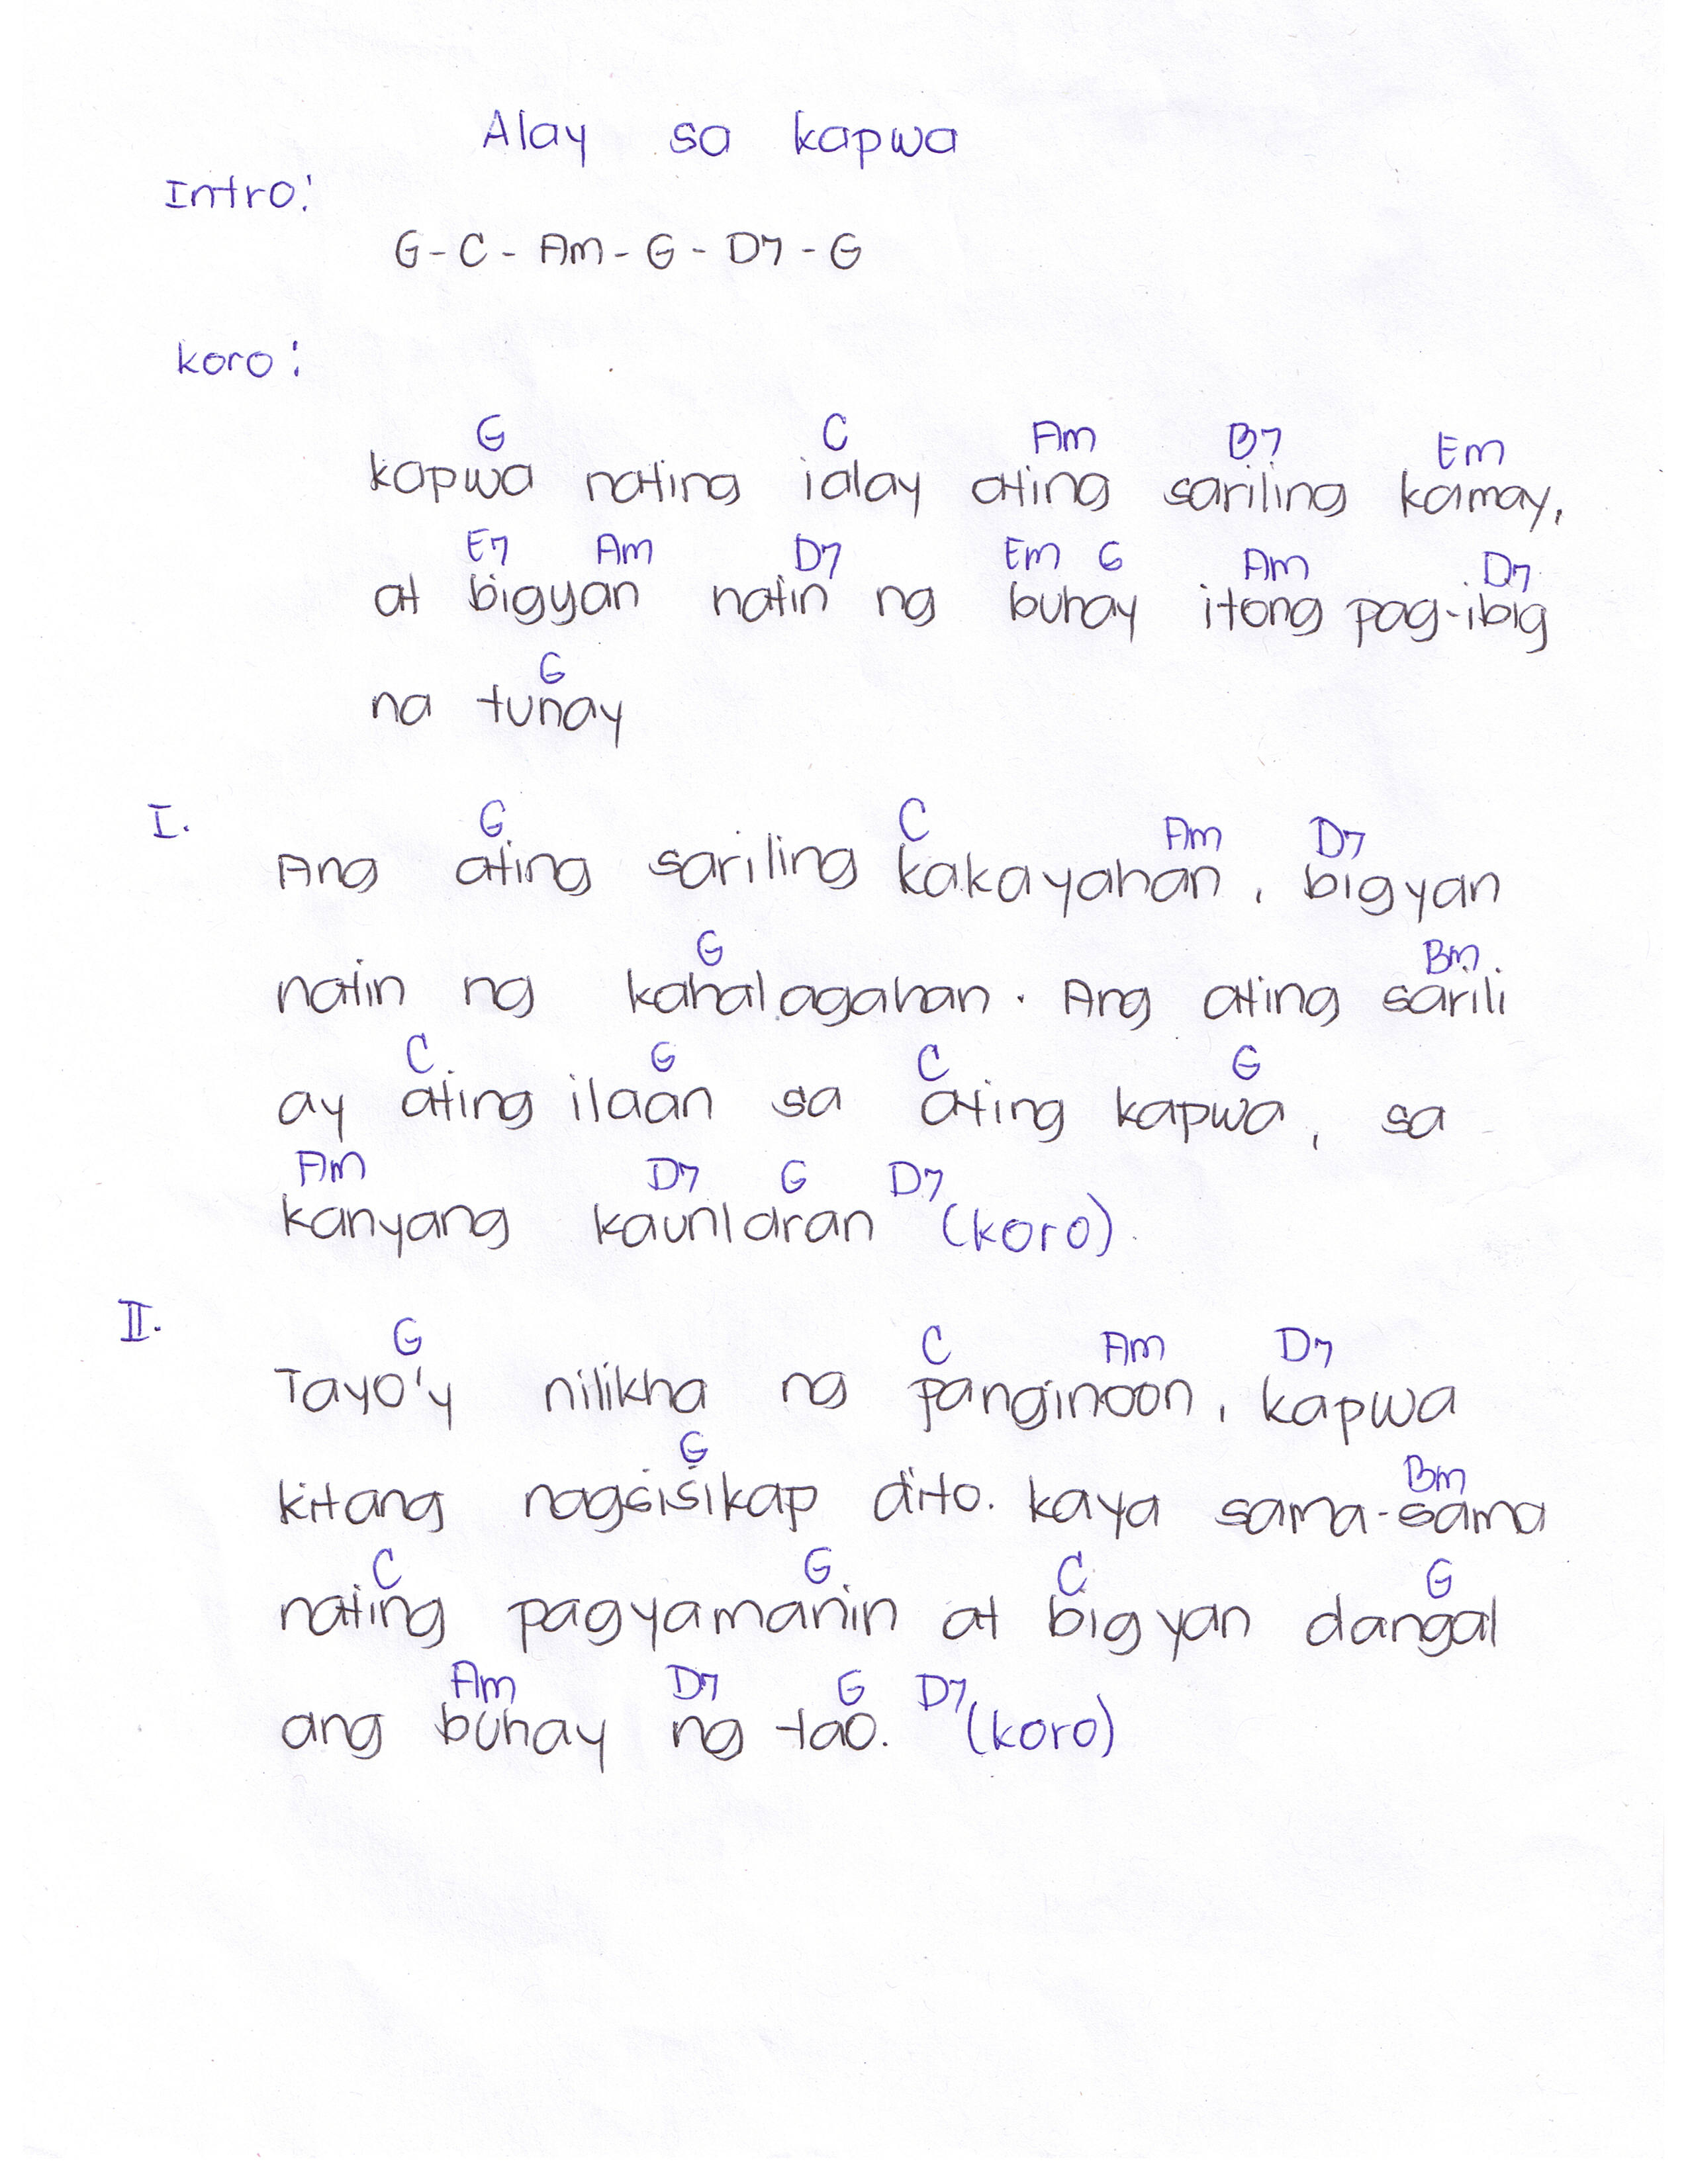 Alay sa kapwa
Intro:
G - C - Am - G - D7 - G
koro:
G C Am B7 Em
kapwa nating ialay ating sariling kamay,
E7 Am D7 Em G Am D7
at bigyan natin ng buhay itong pag-ibig
G
na tunay
I.
G C Am D7
Ang ating sariling kakayahan, bigyan
G Bm
natin ng kahalagahan. Ang ating sarili
C G C G
ay ating ilaan sa ating kapwa, sa
Am D7 G D7
kanyang kaunlaran (koro)
II.
G C Am D7
Tayo'y nilikha ng panginoon, kapwa
G Bm
kitang nagsisikap dito. kaya sama-sama
C G C G
nating pagyamanin at bigyan dangal
Am D7 G D7
ang buhay ng tao. (koro)